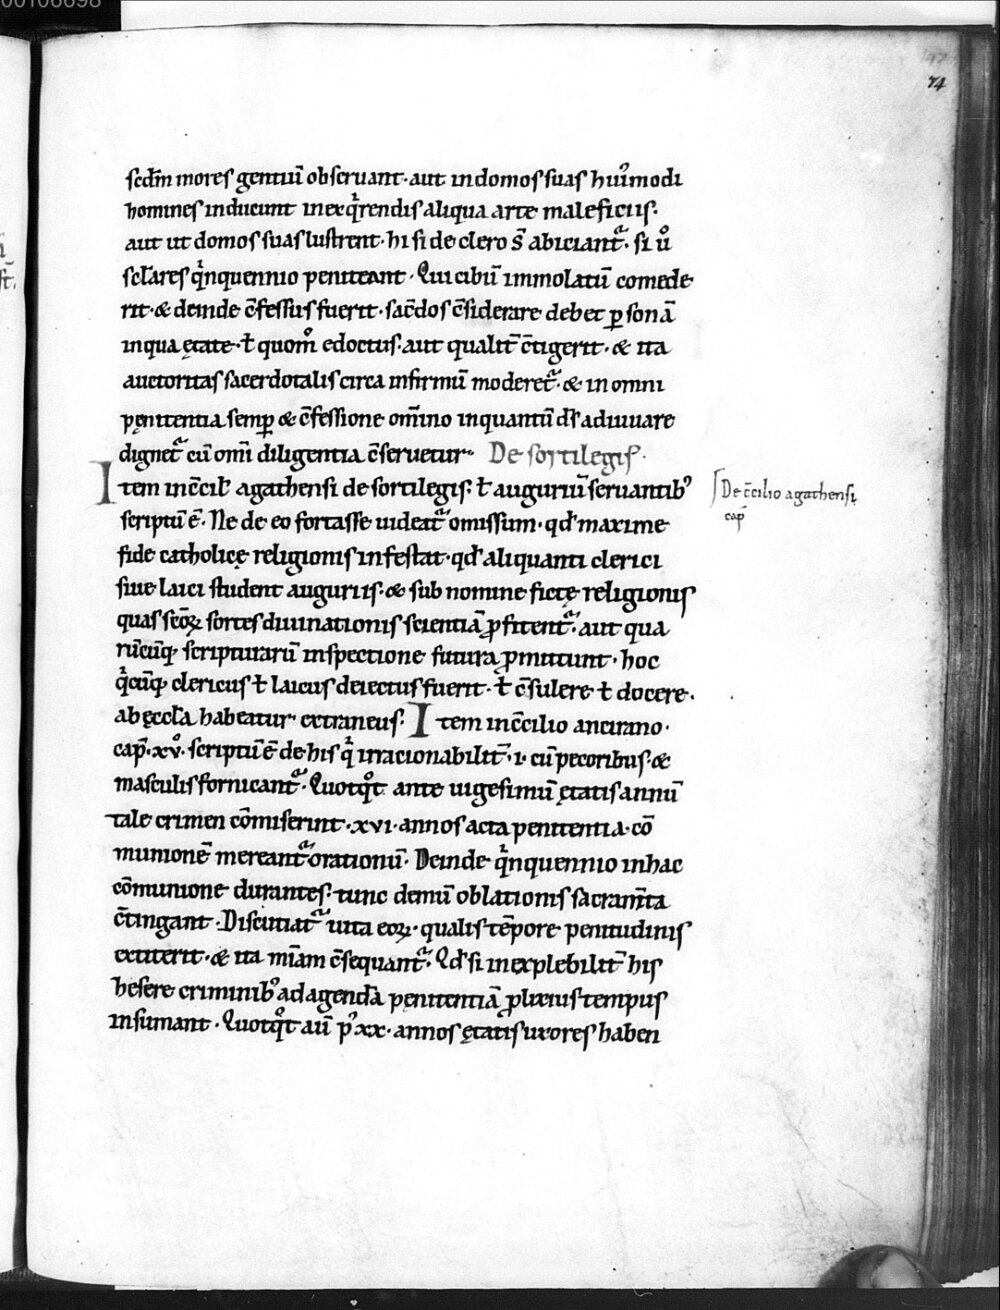 00106698
74
scdm̄ mores gentiū obseruant· aut in domos suas hui᷒modi
homines inducunt in exqͥrendis aliqua arte maleficiis·
aut ut domos suas lustrent· hi si de clero s̄ abiciantᷓ· si uͦ
sclares qͥnquennio peniteant· Qui cibū immolatū comede
rit· & deinde c̄fessus fuerit· sac̄dos c̄siderare debet ꝑsonā
in qua ętate· ł quom̊ edoctus· aut qualit̄ c̄tigerit· & ita
auctoritas sacerdotalis circa infirmū moderetᷓ· & in omni
pęnitentia semꝑ & c̄fessione om̄ino inquantū ds̄ adiuuare
dignetᷓ cū omī diligentia c̄seruetur· De sortilegis·
Item in c̄cił agathensi de sortilegis· ł auguriū seruantib᷒
scriptū ē· Ne de eo fortasse uideatᷓ omissum· qđ maxime
fide catholicę religionis infestat· qđ aliquanti clerici
siue laici student auguriis· & sub nomine fictę religionis
quas sc̄oꝝ sortes diuinationis scientiā ꝓfitentᷓ· aut qua
rūcūq; scripturarū inspectione futura ꝓmittunt· hoc
qͥcūq; clericus ł laicus deiectus fuerit· ł c̄sulere ł docere·
ab ęccła habeatur extraneus· Item in c̄cilio ancirano·
cap̄· xvͦ· scriptū ē de his qͥ irracionabilit̄· i· cū pecoribus· &
masculis fornicantᷓ· Quotqͦt ante uigesimū ętatis annū
tale crimen cōmiserint· xvi· annos acta penitentia· cō
munionē mereantᷓ orationū· Deinde qͥnquennio in hac
cōmunione durantes· tunc demū oblationis sacram̄ta
c̄tingant· Discutiatᷓ uita eoꝝ· qualis tēpore penitudinis
extiterit· & ita m̄iam c̄sequantᷓ· Qđ si inexplebilit̄ his
hesere criminib᷒ ad agendā penitentiā ꝓlixius tempus
insumant· Quotqͦt aū p᷒ xx· annos ętatis uxores haben
De c̄cilio agathensi
cap̄